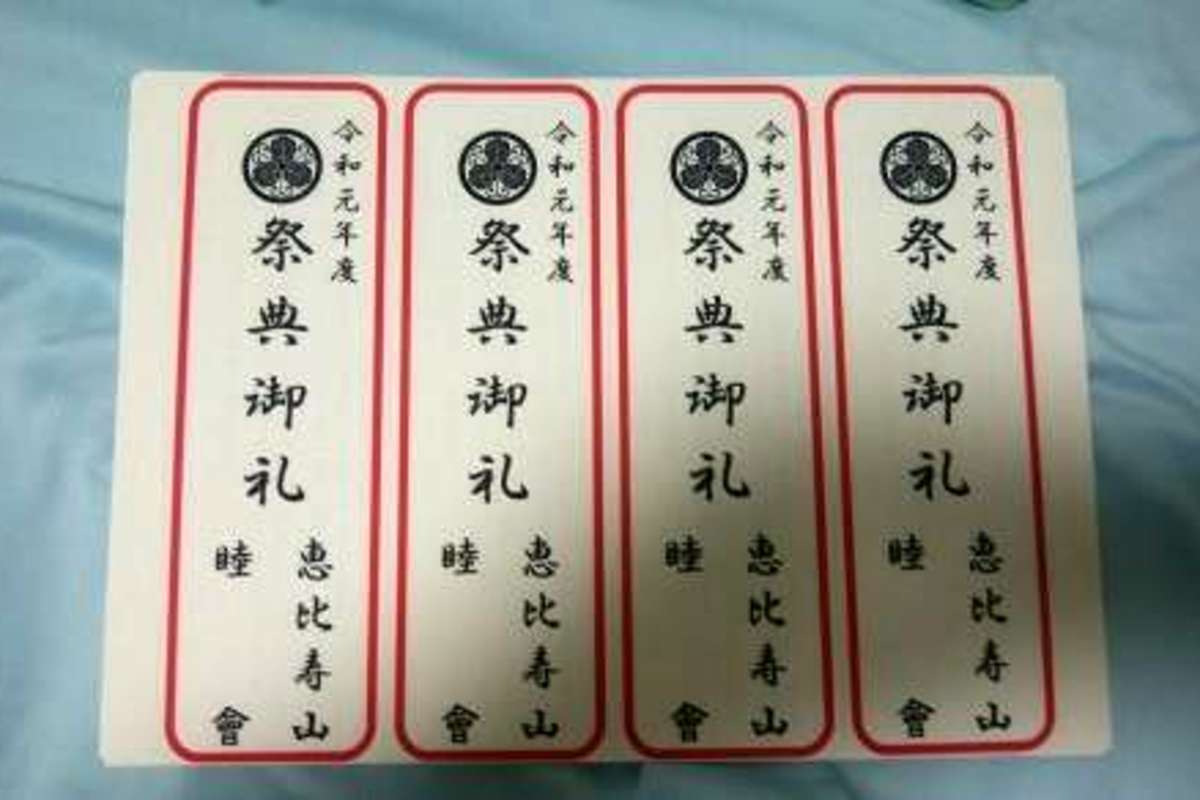 令和元年度
祭典御礼
恵比寿山
睦會
令和元年度
祭典御礼
恵比寿山
睦會
令和元年度
祭典御礼
恵比寿山
睦會
令和元年度
祭典御礼
恵比寿山
睦會